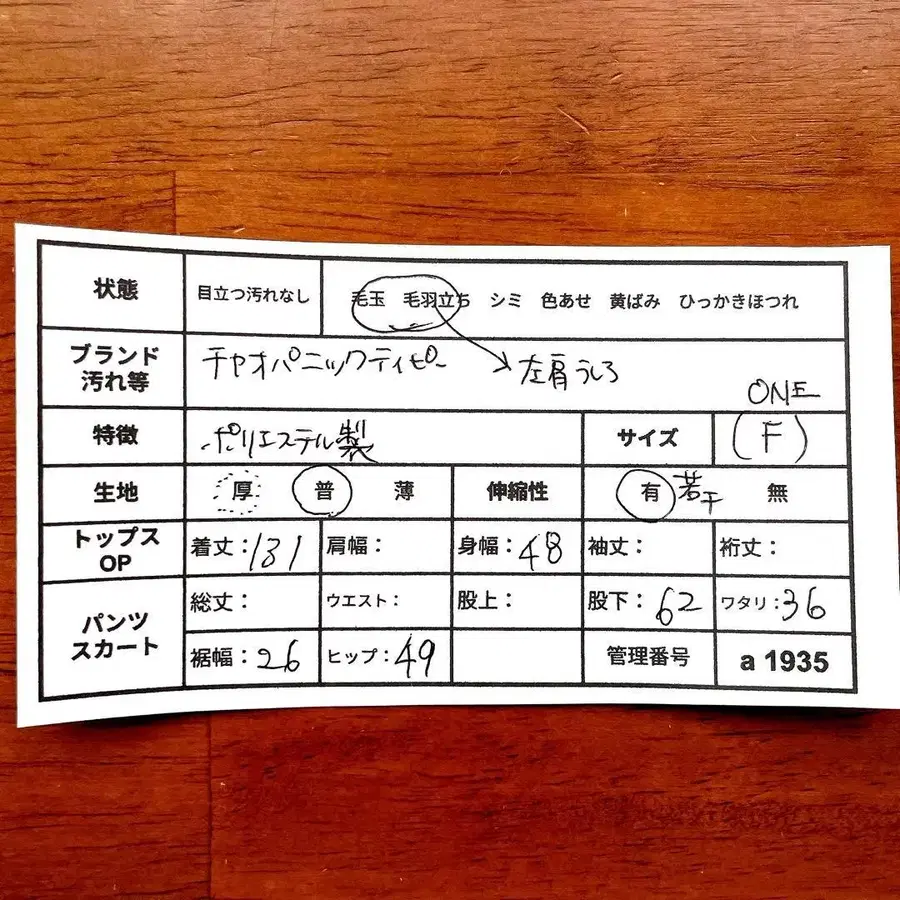 状態 目立つ汚れなし 毛玉 毛羽立ち シミ 色あせ 黄ばみ ひっかきほつれ
ブランド
汚れ等
チャオパニックティピー
左肩うしろ
ONE
特徴 ポリエステル製 サイズ (F)
生地 厚 普 薄 伸縮性 有 若干 無
トップス
OP
着丈:131 肩幅: 身幅:48 袖丈: 裄丈:
パンツ
スカート
総丈: ウエスト: 股上: 股下:62 ワタリ:36
裾幅:26 ヒップ:49 管理番号 a 1935